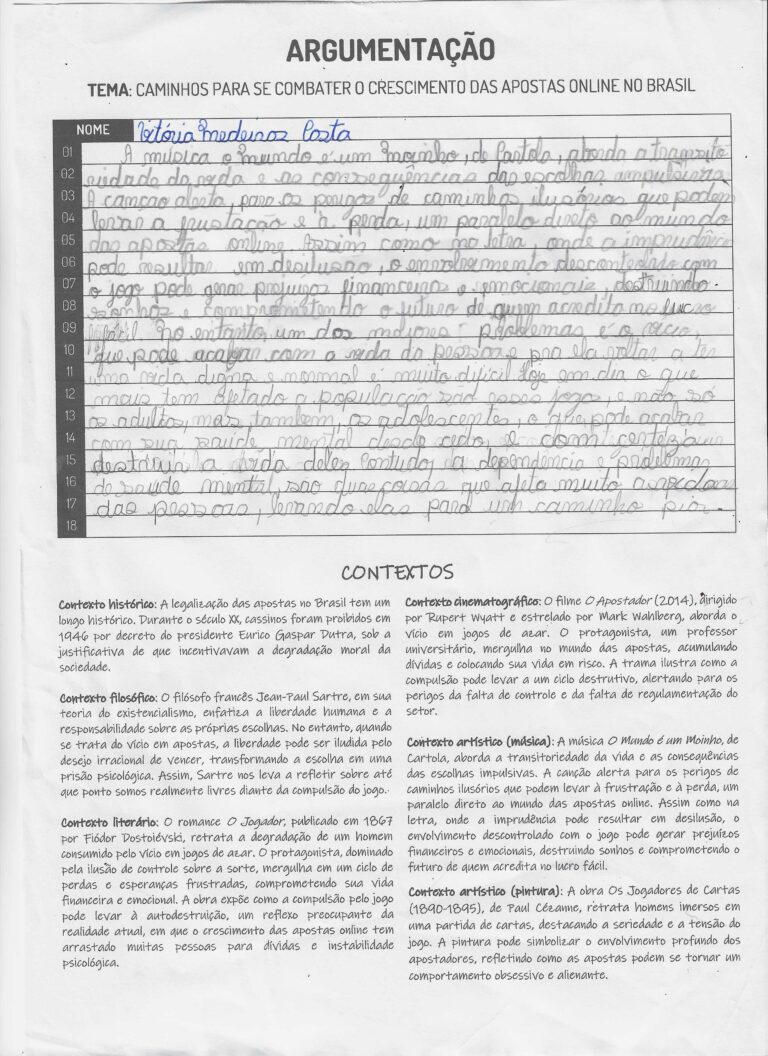 ARGUMENTAÇÃO
TEMA: CAMINHOS PARA SE COMBATER O CRESCIMENTO DAS APOSTAS ONLINE NO BRASIL
NOME Vitória Medeiros Costa
01 A música o mundo é um moinho, de Cartola, aborda a transito
02 riedade da vida e as consequências das escolhas impulsivas
03 A canção alerta, para os perigos de caminhos ilusórios que podem
04 levar a frustação e à perda, um paralelo direto ao mundo
05 das apostas online. Assim como na letra, onde a imprudência
06 pode resultar em desilusão, o envolvimento descontrolado com
07 o jogo pode gerar prejuízos financeiros e emocionais, destruindo
08 sonhos e comprometendo o futuro de quem acredita no lucro
09 fácil. No entanto, um dos maiores problemas é o vício,
10 que pode acabar com a vida da pessoa e pra ela voltar a ter
11 uma vida digna e normal é muito difícil. Hoje em dia o que
12 mais tem afetado a população são esses jogos, e não só
13 os adultos, mas também, os adolescentes, o que pode acabar
14 com sua saúde mental desde cedo, e com certeza
15 a vida deles. Contudo, a dependência e problemas
16 de saúde mental, são duas coisas que afeta muito as vidas
17 das pessoas, levando elas para um caminho pior.
18
CONTEXTOS
Contexto histórico: A legalização das apostas no Brasil tem um
longo histórico. Durante o século XX, cassinos foram proibidos em
1946 por decreto do presidente Eurico Gaspar Dutra, sob a
justificativa de que incentivavam a degradação moral da
sociedade.
Contexto filosófico: O filósofo francês Jean-Paul Sartre, em sua
teoria do existencialismo, enfatiza a liberdade humana e a
responsabilidade sobre as próprias escolhas. No entanto, quando
se trata do vício em apostas, a liberdade pode ser iludida pelo
desejo irracional de vencer, transformando a escolha em uma
prisão psicológica. Assim, Sartre nos leva a refletir sobre até
que ponto somos realmente livres diante da compulsão do jogo.
Contexto literário: O romance O Jogador, publicado em 1867
por Fiódor Dostoiévski, retrata a degradação de um homem
consumido pelo vício em jogos de azar. O protagonista, dominado
pela ilusão de controle sobre a sorte, mergulha em um ciclo de
perdas e esperanças frustradas, comprometendo sua vida
financeira e emocional. A obra expõe como a compulsão pelo jogo
pode levar à autodestruição, um reflexo preocupante da
realidade atual, em que o crescimento das apostas online tem
arrastado muitas pessoas para dívidas e instabilidade
psicológica.
Contexto cinematográfico: O filme O Apostador (2014), dirigido
por Rupert Wyatt e estrelado por Mark Wahlberg, aborda o
vício em jogos de azar. O protagonista, um professor
universitário, mergulha no mundo das apostas, acumulando
dívidas e colocando sua vida em risco. A trama ilustra como a
compulsão pode levar a um ciclo destrutivo, alertando para os
perigos da falta de controle e da falta de regulamentação do
setor.
Contexto artístico (música): A música O Mundo é um Moinho, de
Cartola, aborda a transitoriedade da vida e as consequências
das escolhas impulsivas. A canção alerta para os perigos de
caminhos ilusórios que podem levar à frustração e à perda, um
paralelo direto ao mundo das apostas online. Assim como na
letra, onde a imprudência pode resultar em desilusão, o
envolvimento descontrolado com o jogo pode gerar prejuízos
financeiros e emocionais, destruindo sonhos e comprometendo o
futuro de quem acredita no lucro fácil.
Contexto artístico (pintura): A obra Os Jogadores de Cartas
(1890-1895), de Paul Cézanne, retrata homens imersos em
uma partida de cartas, destacando a seriedade e a tensão do
jogo. A pintura pode simbolizar o envolvimento profundo dos
apostadores, refletindo como as apostas podem se tornar um
comportamento obsessivo e alienante.